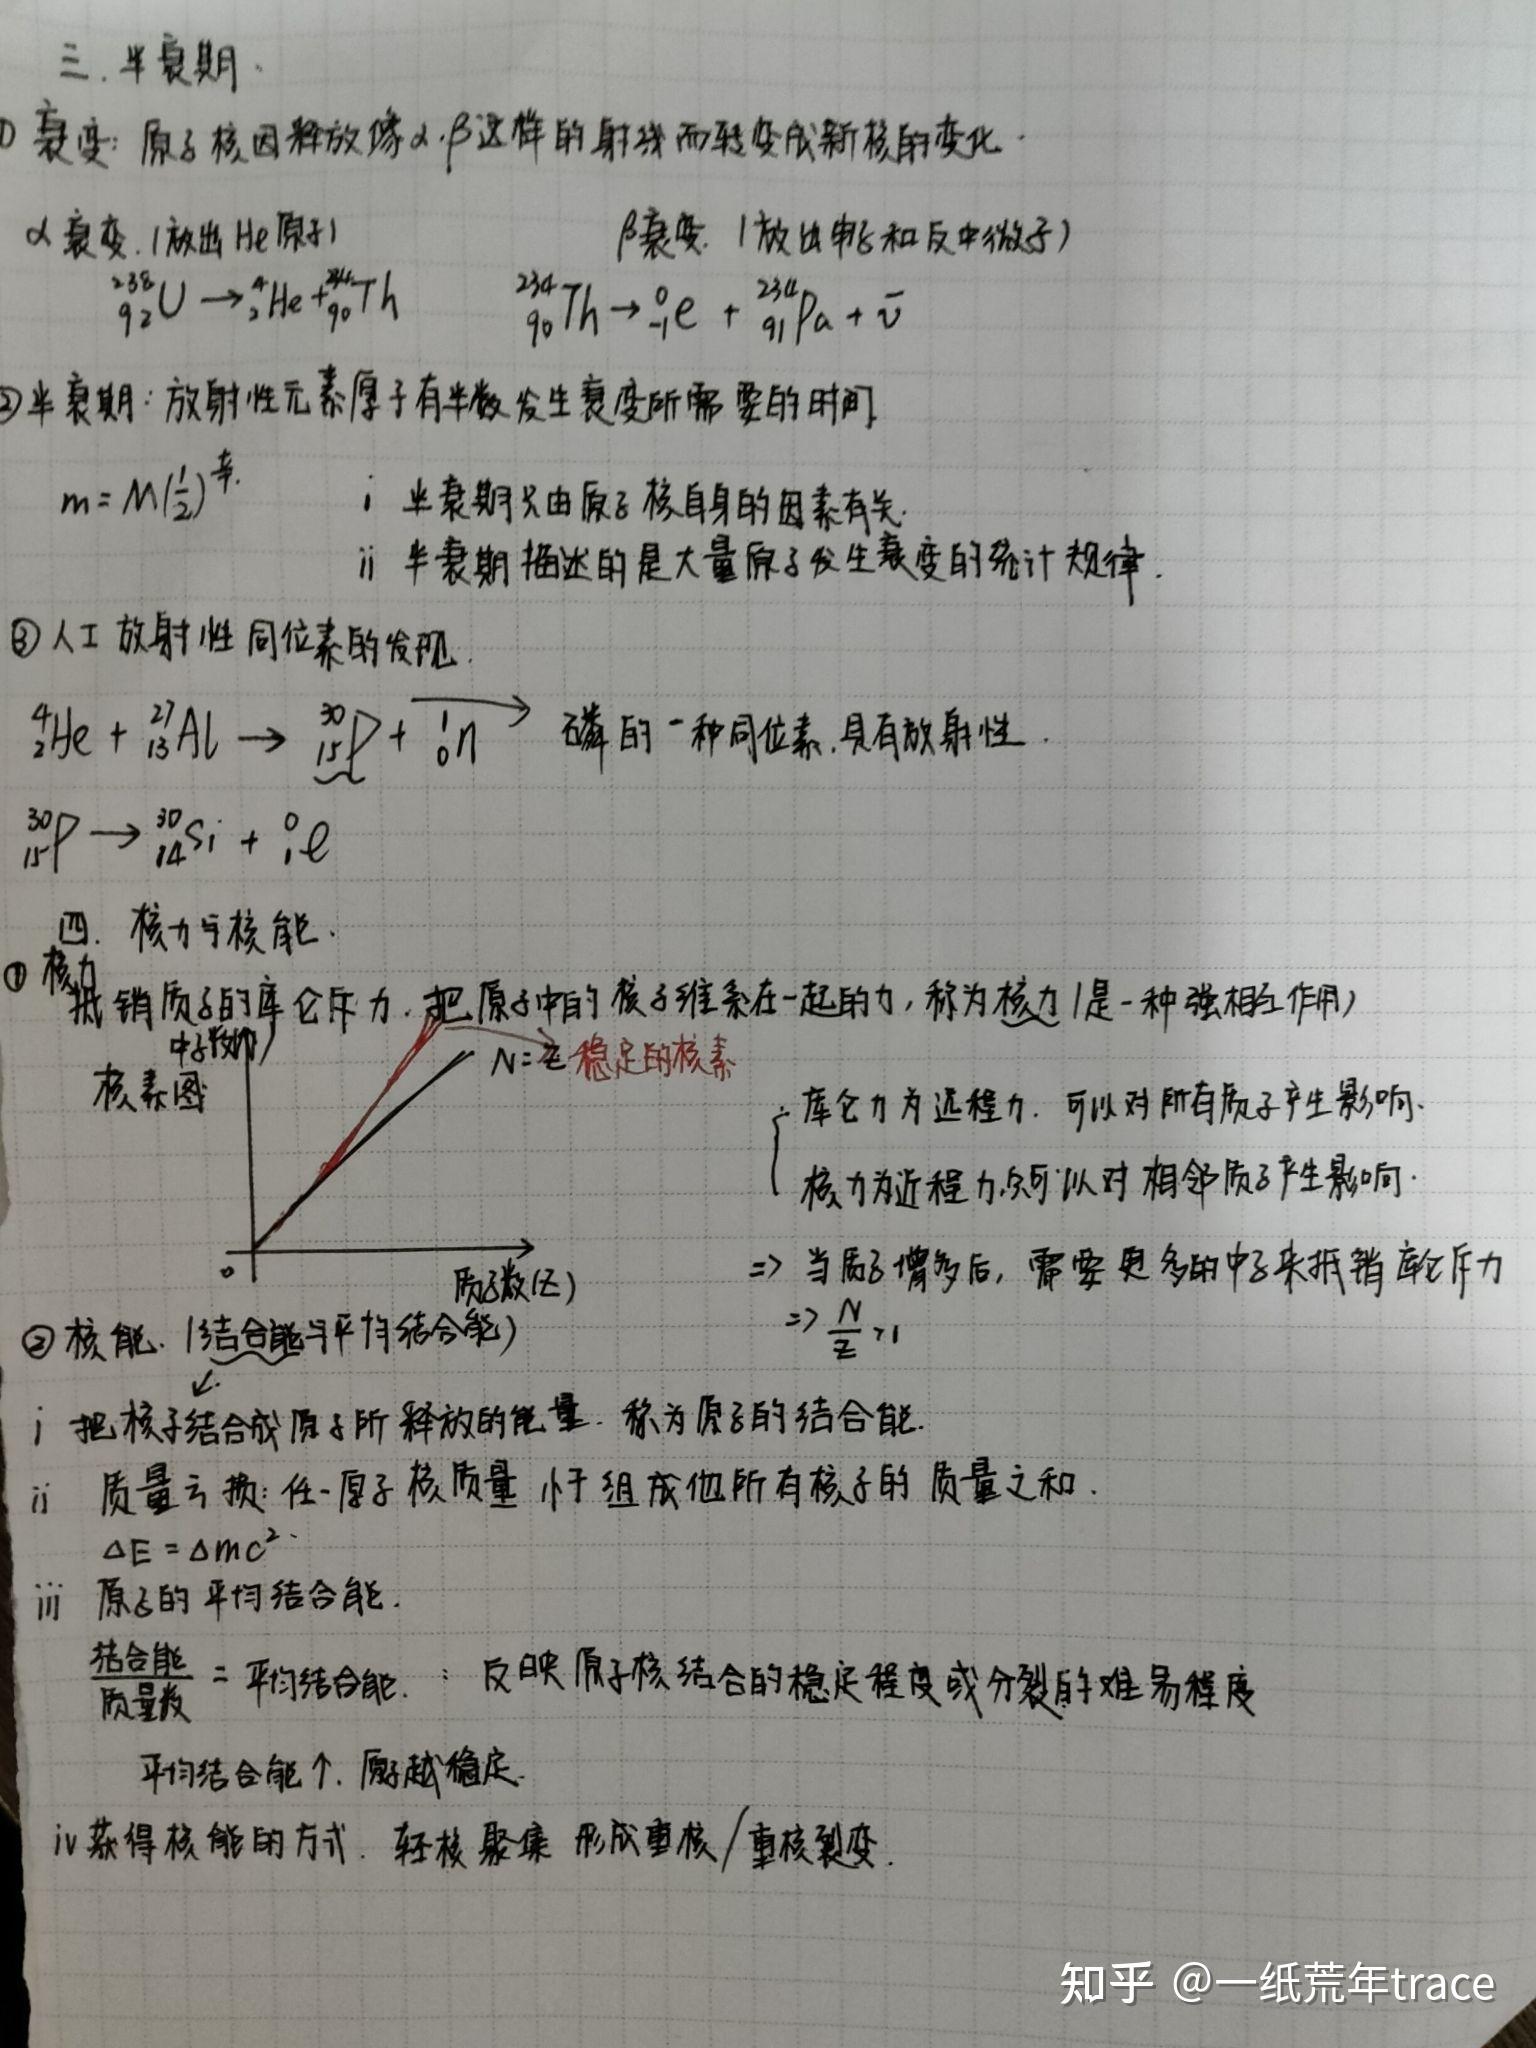 三. 半衰期.
① 衰变: 原子核因释放像α.β这样的射线而转变成新核的变化.
α衰变. (放出He原子) β衰变. (放出电子和反中微子)
²³⁸₉₂U → ⁴₂He + ²³⁴₉₀Th ²³⁴₉₀Th → ⁰₋₁e + ²³⁴₉₁Pa + ν̄
② 半衰期: 放射性元素原子有半数发生衰变所需要的时间
m = M(1/2)
i 半衰期只由原子核自身的因素有关.
ii 半衰期描述的是大量原子发生衰变的统计规律.
③ 人工放射性同位素的发现.
⁴₂He + ²⁷₁₃Al → ³⁰₁₅P + ¹₀n 磷的一种同位素,具有放射性.
³⁰₁₅P → ³⁰₁₄Si + ⁰₁e
四. 核力与核能.
① 核力
抵销质子的库仑斥力. 把原子中的核子维系在一起的力, 称为核力(是一种强相互作用)
中子数(N)
N=Z 稳定的核素
核素图
库仑力为远程力. 可以对所有质子产生影响.
核力为近程力,只可以对相邻质子产生影响.
0
质子数(Z)
=> 当质子增多后, 需要更多的中子来抵销库仑斥力
=> N/Z >1
② 核能. (结合能与平均结合能)
i 把核子结合成原子所释放的能量. 称为原子的结合能.
ii 质量亏损: 任一原子核质量小于组成他所有核子的质量之和.
ΔE = Δmc².
iii 原子的平均结合能.
结合能/质量数 = 平均结合能. : 反映原子核结合的稳定程度或分裂的难易程度
平均结合能↑. 原子越稳定.
iv 获得核能的方式. 轻核聚集形成重核/重核裂变.
知乎 @一纸荒年trace